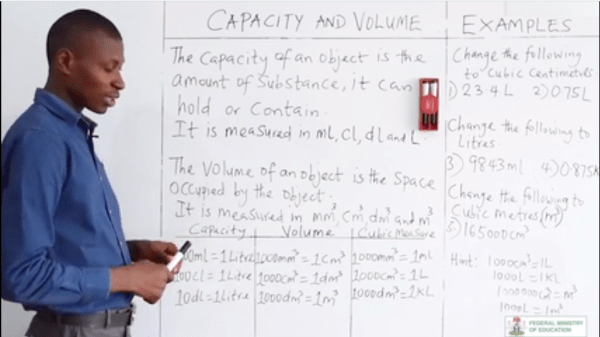 CAPACITY AND VOLUME
The Capacity of an object is the
amount of Substance, it can
hold or Contain.
It is measured in mL, Cl, dL and L
The Volume of an object is the Space
Occupied by the Object.
It is measured in mm³, Cm³, dm³ and m³
Capacity Volume Cubic Measure
00ml = 1Litre 1000mm³ = 1Cm³ 1000mm³ = 1mL
100Cl = 1Litre 1000Cm³ = 1dm³ 1000Cm³ = 1L
10dl = 1Litre 1000dm³ = 1m³ 1000dm³ = 1KL
EXAMPLES
Change the following
to Cubic Centimetres
1) 23.4L 2) 0.75L
Change the following to
Litres.
3) 9843ml 4) 0.875K
Change the following to
Cubic metres (m³)
5) 165000cm³
Hint: 1000cm³ = 1L
1000L = 1KL
= m³
1000L = 1m³
FEDERAL MINISTRY
OF EDUCATION